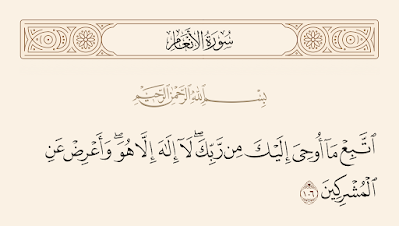 سُورَةُ الأَنْعَامِ
بِسْمِ اللَّهِ الرَّحْمَٰنِ الرَّحِيمِ
ٱتَّبِعْ مَآ أُوحِىَ إِلَيْكَ مِن رَّبِّكَ ۖ لَآ إِلَٰهَ إِلَّا هُوَ ۖ وَأَعْرِضْ عَنِ
ٱلْمُشْرِكِينَ ١٠٦